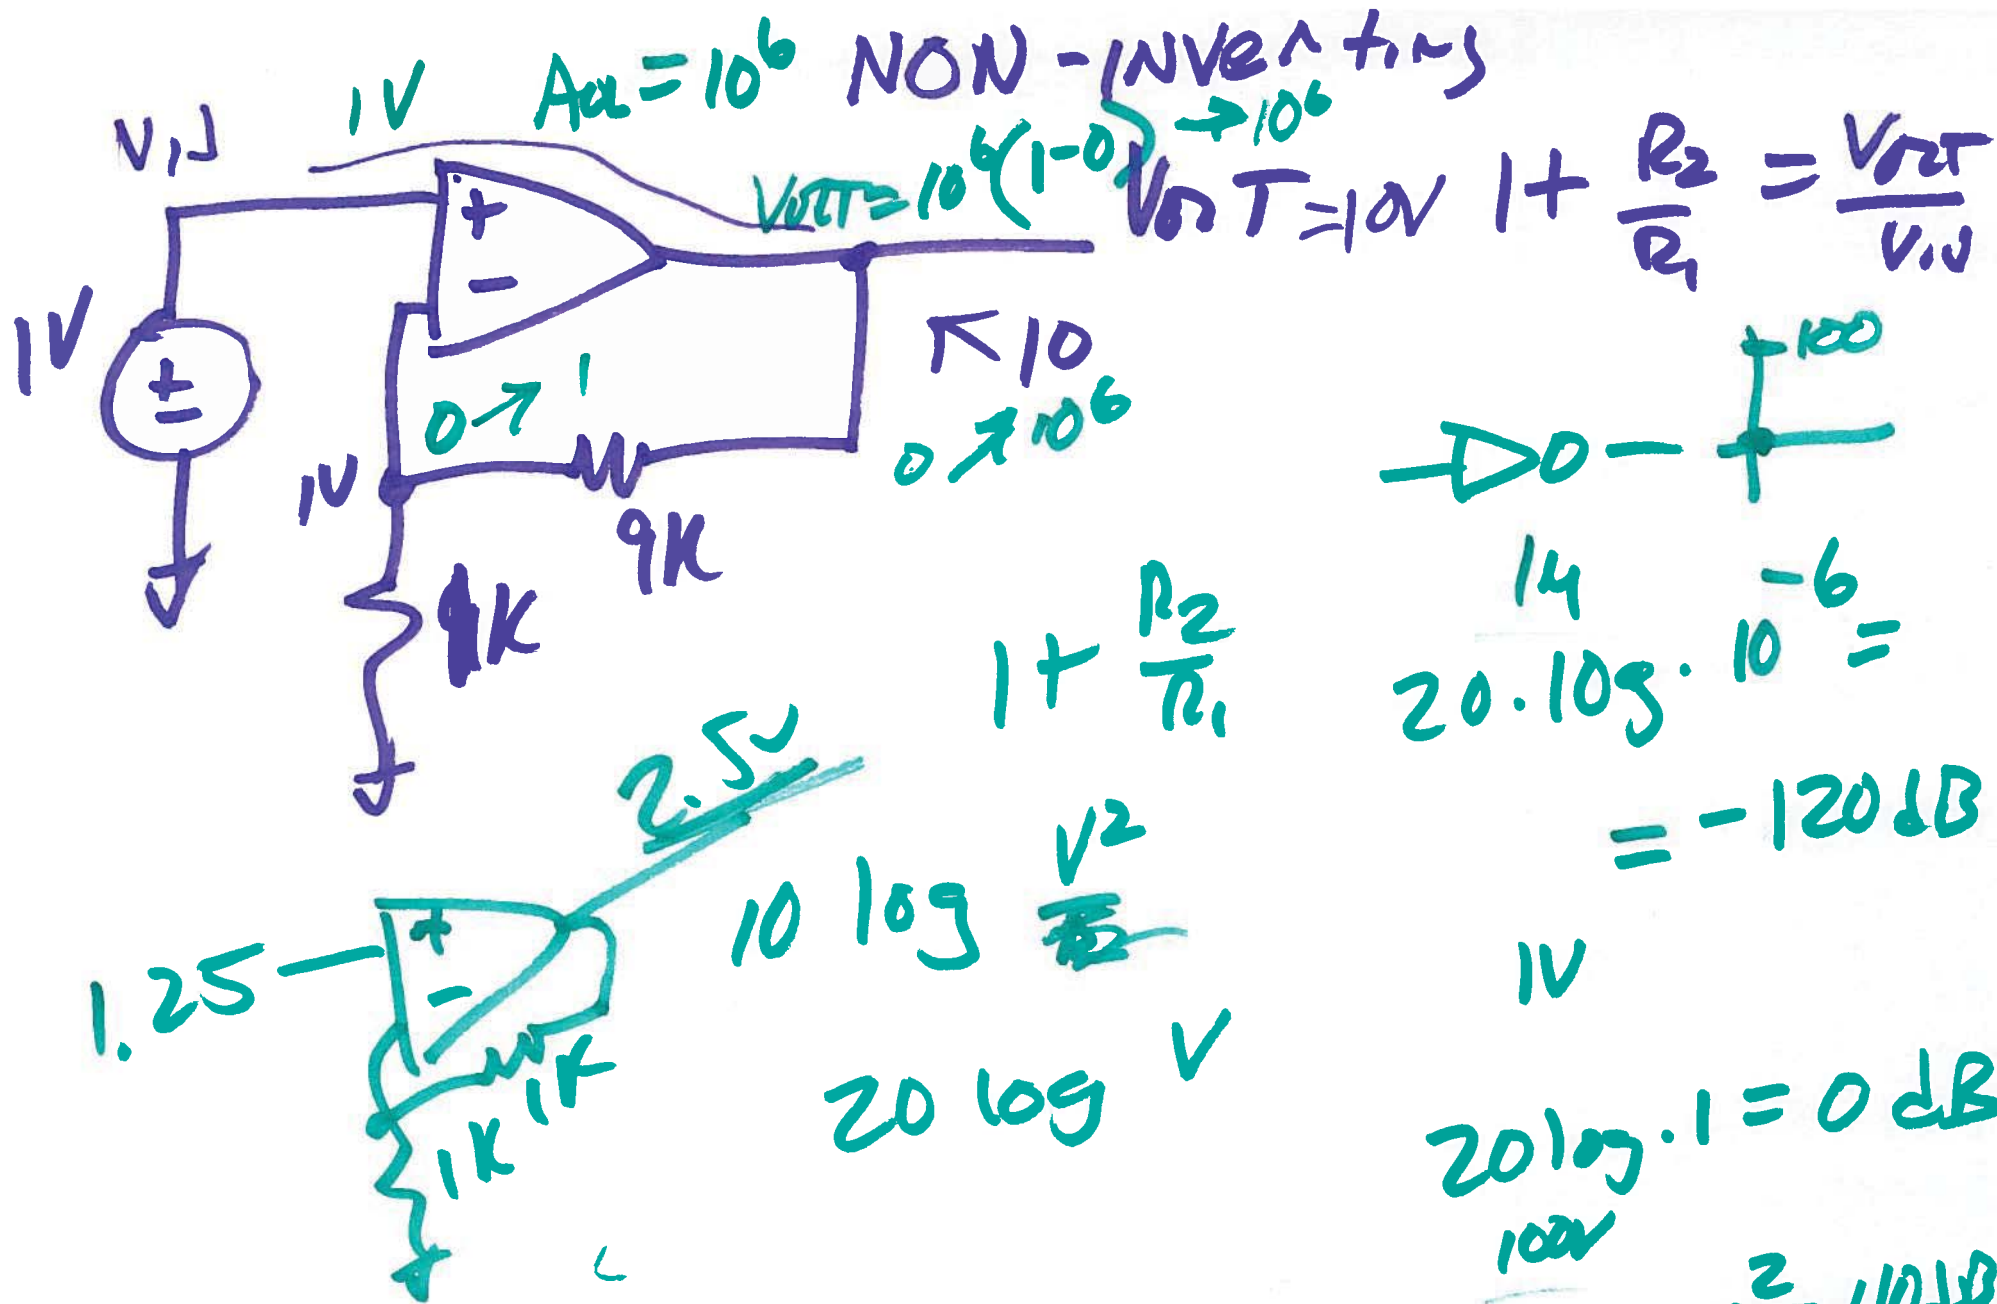 1V AOL = 10^6 NON-INVerting
VIN
VOUT = 10^6(1-0) → 10^6
VOUT = 10V 1 + R2/R1 = VOUT/VIN
+
-
1V
+
-
10
100
0 → 1
0 → 10^6
1V
9K
1K
1 + R2/R1
1μ
20·log·10^-6 =
= -120dB
2.5V
10 log V^2
1.25
+
-
1K
1K
20 log V
1V
20log·1 = 0 dB
100V